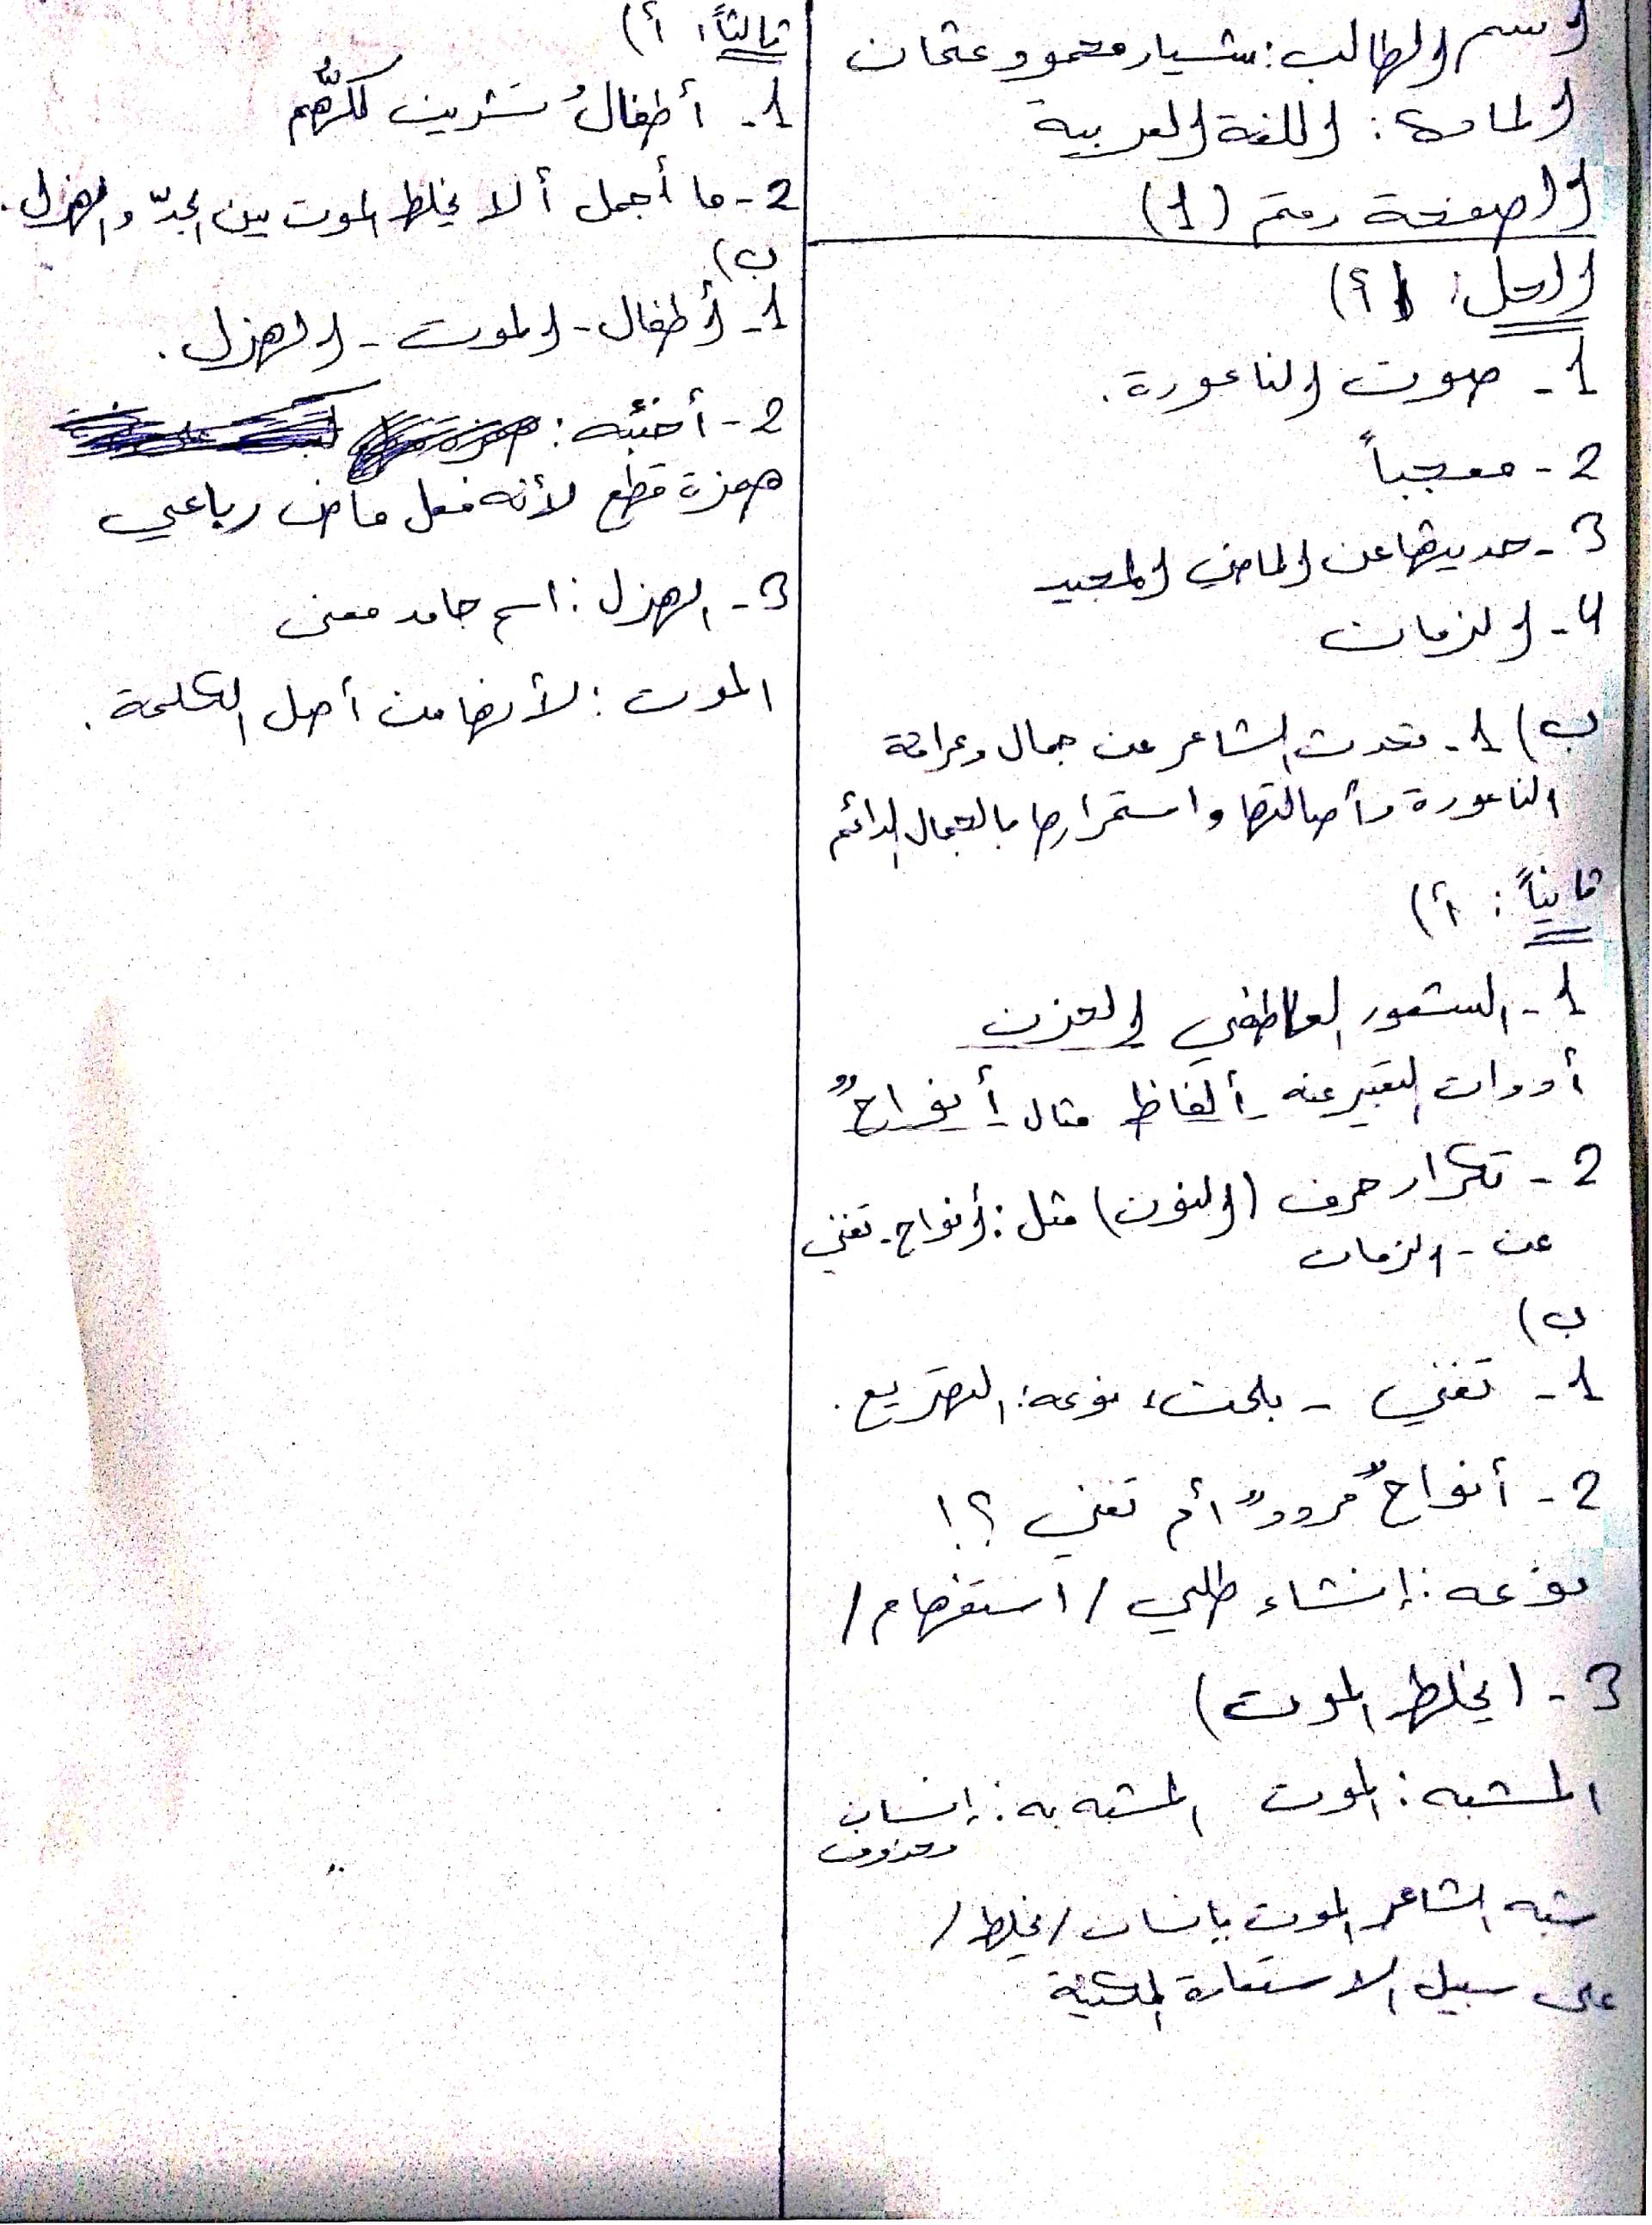 اسم الطالب: شيار محمود عثمان
المادة: اللغة العربية
الصفحة رقم (1)
الحل: أ)
1- صوت الناعورة.
2- معجباً
3- حديثها عن الماضي المجيد
4- الزمان
ب) 1- تحدث الشاعر عن جمال وعراقة
الناعورة وأصالتها واستمرارها بالجمال الدائم
ثانياً: أ)
1- الشعور العاطفي الحزن
أدوات التعبير عنه ألفاظ مثال أنواحٌ
2- تكرار حرف (النون) مثل: أنواح- تغني
عن - الزمان
ب)
1- تغني - بلحن، نوعه: التصريع.
2- أنواحٌ مردودٌ أم تغني ؟!
نوعه: إنشاء طلبي /استفهام/
3- (يخلط الموت)
المشبه: الموت المشبه به: إنسان
محذوف
شبه الشاعر الموت بإنسان /يخلط/
على سبيل الاستعارة المكنية
ثالثاً: أ)
1- أطفالُ تشرين كلُّهم
2- ما أجمل ألا يخلط الموت بين الجدّ والهزل.
ب)
1- أطفال - الموت - الهزل.
2- أخبّئه:
همزة قطع لأنه فعل ماض رباعي
3- الهزل: اسم جامد معنى
الموت: لأنها من أصل الكلمة.